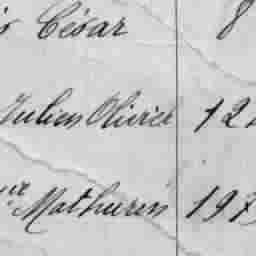 César 8
Julien Olivier 12
Mathurin 197